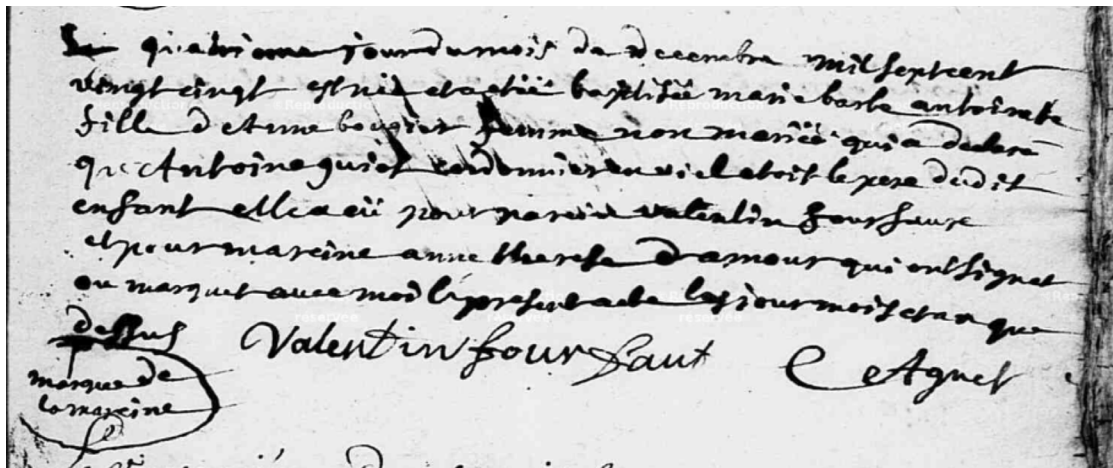 Le quatrieme jour du mois de decembre mil septcent
vingt cinq est née et a etée baptisée marie barbe antoinette
fille d Anne femme non mariée qui a declaré
que Antoine cordonnier etoit le pere dudit
enfant elle a eü pour parein valentin fourfaure
et pour mareine anne therese D'amour qui ont signet
ou marquet avec moi le present acte les jour mois et an que
dessus
Valentin fourfaut
C Agnel
marque de
la mareine